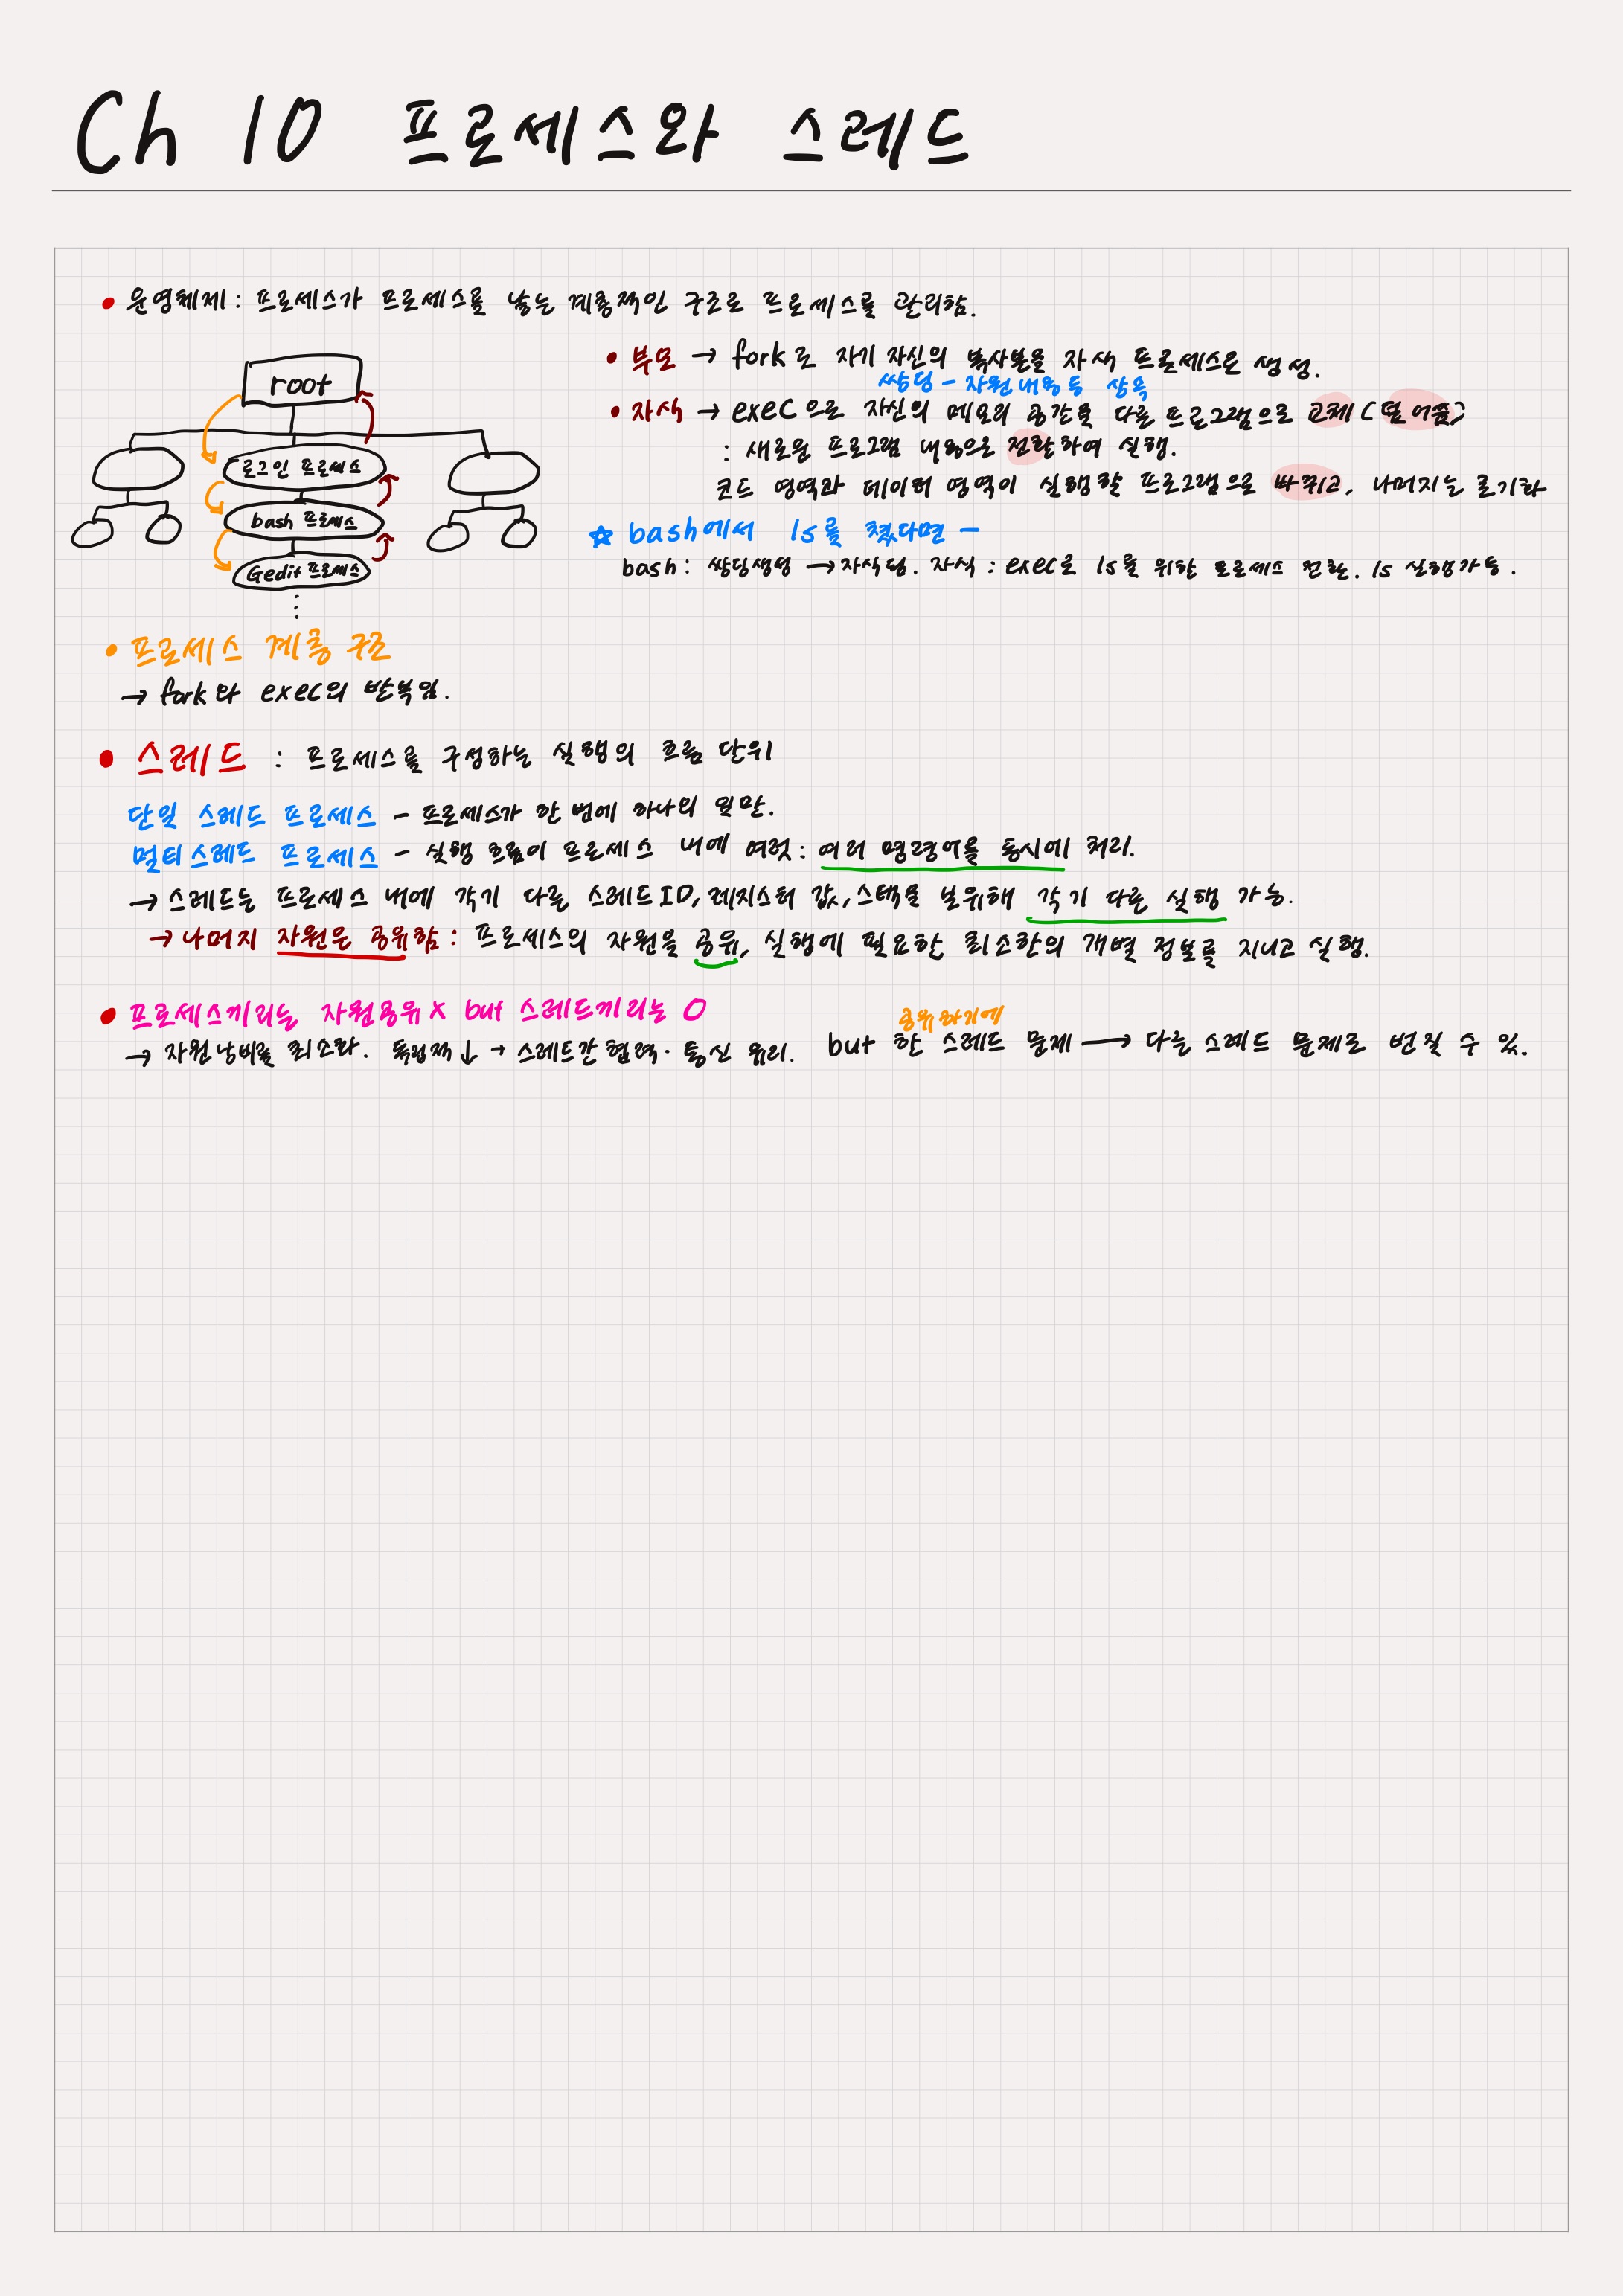 Ch 10 프로세스와 스레드
• 운영체제 : 프로세스가 프로세스를 낳는 계층적인 구조로 프로세스를 관리함.
root
로그인 프로세스
bash 프로세스
Gedit 프로세스
⋮
• 부모 → fork로 자기 자신의 복사본을 자식 프로세스로 생성.
쌍둥 - 자원 내용 등 상속
• 자식 → exec으로 자신의 메모리 공간을 다른 프로그램으로 교체 (덮어씀)
: 새로운 프로그램 내용으로 전환하여 실행.
코드 영역과 데이터 영역이 실행할 프로그램으로 바뀌고, 나머지는 초기화
☆ bash에서 ls를 쳤다면 -
bash : 쌍둥생성 → 자식됨. 자식 : exec로 ls를 위한 프로세스 전환. ls 실행가능.
• 프로세스 계층 구조
→ fork와 exec의 반복임.
• 스레드 : 프로세스를 구성하는 실행의 흐름 단위
단일 스레드 프로세스 - 프로세스가 한 번에 하나의 일만.
멀티스레드 프로세스 - 실행 흐름이 프로세스 내에 여럿 : 여러 명령어를 동시에 처리.
→ 스레드는 프로세스 내에 각기 다른 스레드 ID, 레지스터 값, 스택을 보유해 각기 다른 실행 가능.
→ 나머지 자원은 공유함 : 프로세스의 자원을 공유, 실행에 필요한 최소한의 개별 정보를 지니고 실행.
• 프로세스끼리는 자원공유X but 스레드끼리는 O
→ 자원낭비를 최소화. 독립적↓ → 스레드간 협력·통신 유리.
공유하기에
but 한 스레드 문제 → 다른 스레드 문제로 번질 수 있.